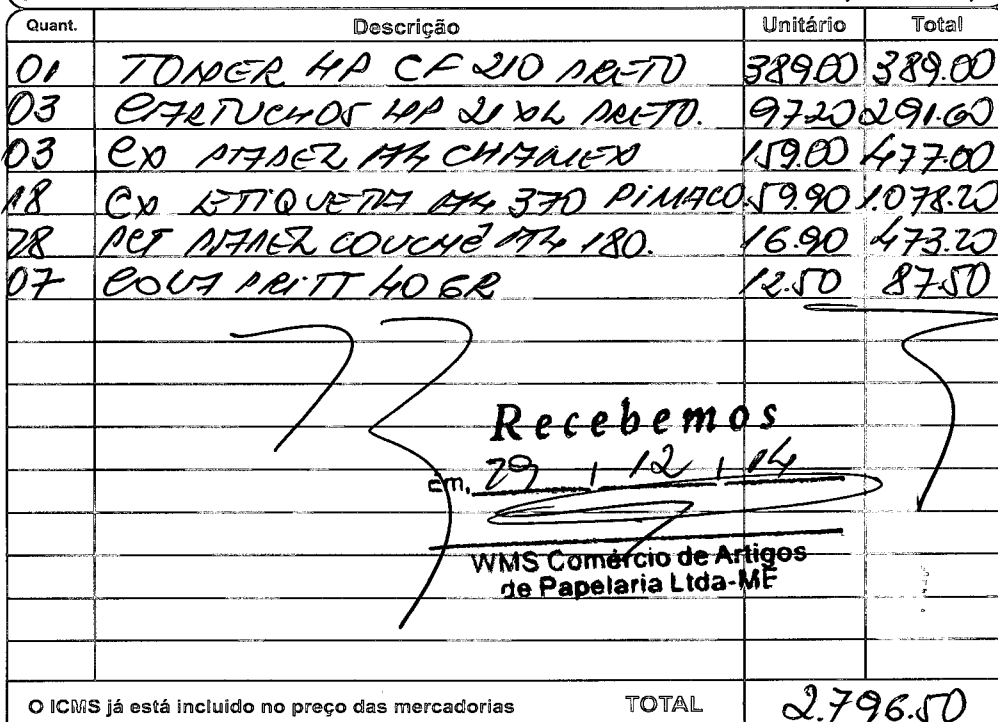 Quant. Descrição Unitário Total
01 TONER HP CF 210 PRETO 389.00 389.00
03 CARTUCHOS HP 21 XL PRETO. 97.20 291.60
03 CX PAPEL A4 CHAMEX 159.00 477.00
18 CX ETIQUETA A4 370 PIMACO 59.90 1.078.20
28 PCT PAPEL COUCHÊ A4 180. 16.90 473.20
07 COLA PRITT 40 GR 12.50 87.50
Recebemos
Em, 29 / 12 / 14
WMS Comércio de Artigos
de Papelaria Ltda-ME
O ICMS já está incluido no preço das mercadorias TOTAL 2.796.50